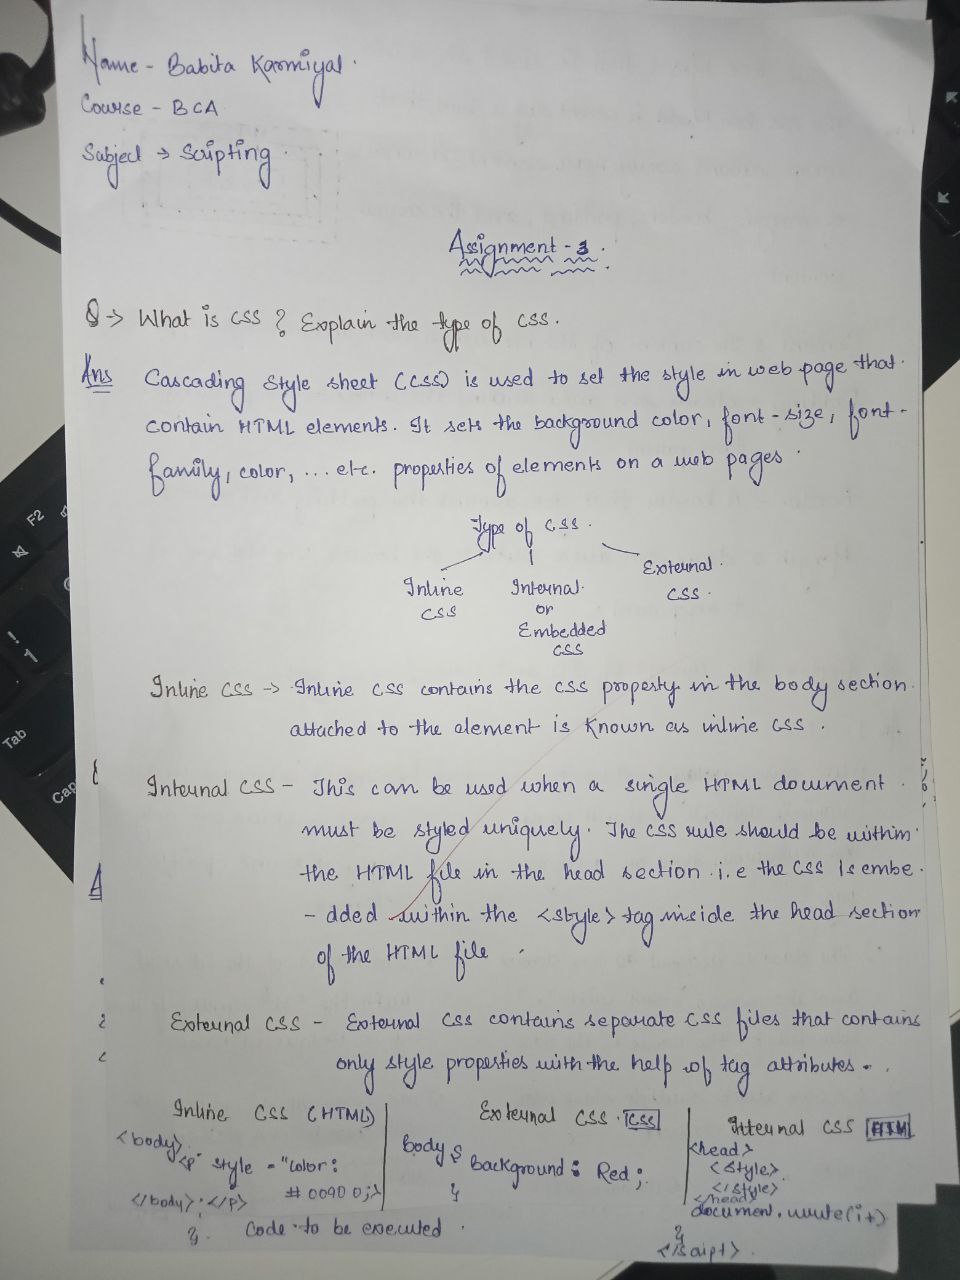 Name - Babita Karmiyal.
Course - BCA
Subject → Scripting.
Assignment - 3.
Q → What is CSS ? Explain the type of CSS.
Ans Cascading Style sheet (CSS) is used to set the style in web page that.
contain HTML elements. It sets the background color, font-size, font-
family, color, ... etc. properties of elements on a web pages.
Type of CSS.
Inline CSS
Internal or Embedded CSS
External CSS.
Inline CSS → Inline CSS contains the CSS property in the body section.
attached to the element is known as inline CSS.
Internal CSS - This can be used when a single HTML document.
must be styled uniquely. The CSS rule should be within
the HTML file in the head section. i.e the CSS is embe.
- dded within the <style> tag inside the head section
of the HTML file.
External CSS - External CSS contains separate CSS files that contains
only style properties with the help of tag attributes.
Inline CSS (HTML)
<body>
<p style = "color:
# 00900;>
</body>; </p>
}. Code to be executed.
External CSS. CSS
body {
background: Red;
}
Internal CSS HTM
<head>
<style>
</style>
</head>
document.write(i+)
}
F2
!
1
Tab
Cap